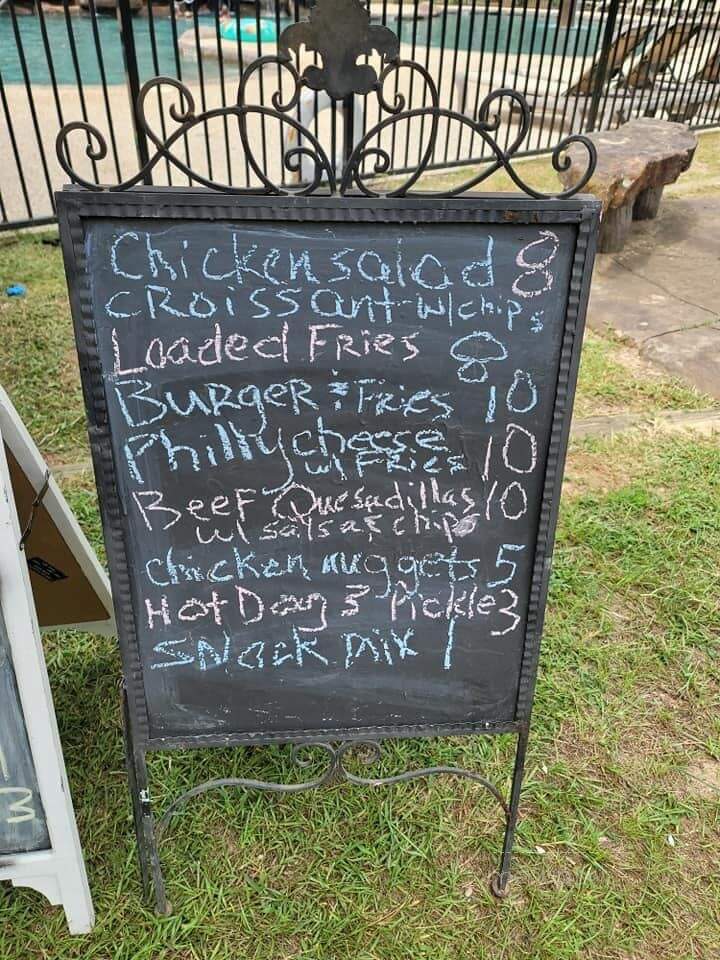 Chicken salad 8
CROISSANT w/chips
Loaded FRIES 8
BURGER & FRIES 10
Philly cheese 10
w/ FRIES
BEEF Quesadillas 10
w/ salsa & chips
chicken nuggets 5
Hot Dog 3 Pickle 3
SNack mix 1
3